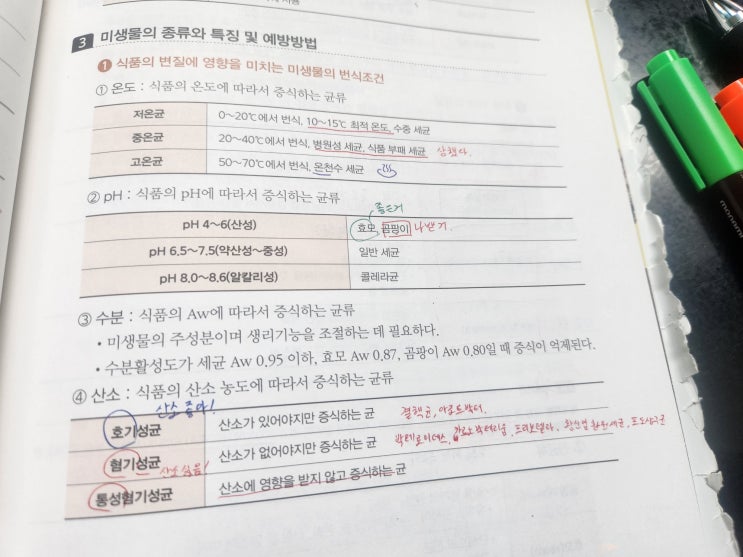 3 미생물의 종류와 특징 및 예방방법
1 식품의 변질에 영향을 미치는 미생물의 번식조건
① 온도 : 식품의 온도에 따라서 증식하는 균류
저온균 0~20℃에서 번식, 10~15℃ 최적 온도, 수중 세균
중온균 20~40℃에서 번식, 병원성 세균, 식품 부패 세균 상했다.
고온균 50~70℃에서 번식, 온천수 세균
② pH : 식품의 pH에 따라서 증식하는 균류
좋은거
pH 4~6(산성) 효모, 곰팡이 나쁜거.
pH 6.5~7.5(약산성~중성) 일반 세균
pH 8.0~8.6(알칼리성) 콜레라균
③ 수분 : 식품의 Aw에 따라서 증식하는 균류
• 미생물의 주성분이며 생리기능을 조절하는 데 필요하다.
• 수분활성도가 세균 Aw 0.95 이하, 효모 Aw 0.87, 곰팡이 Aw 0.80일 때 증식이 억제된다.
④ 산소 : 식품의 산소 농도에 따라서 증식하는 균류
산소 좋아!
호기성균 산소가 있어야지만 증식하는 균 결핵균,
혐기성균 산소 싫음! 산소가 없어야지만 증식하는 균
통성혐기성균 산소에 영향을 받지 않고 증식하는 균